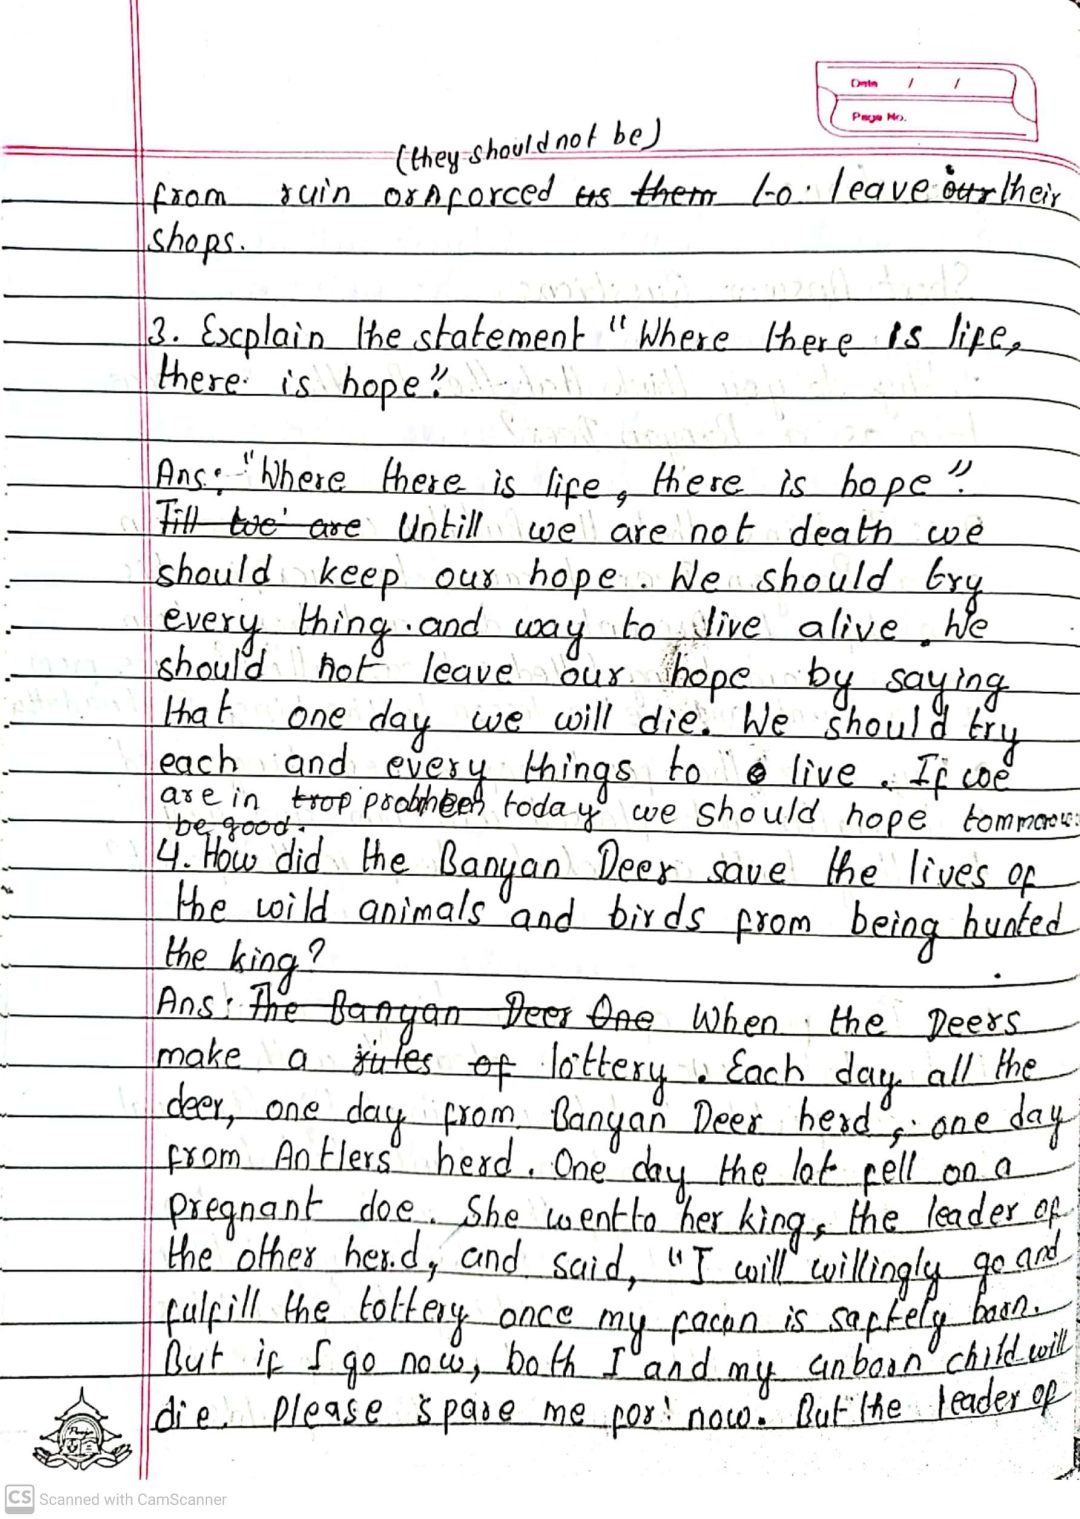 Date / /
Page No.
(they should not be)
from ruin or ^ forced us them to leave our their
shops.
3. Explain the statement "Where there is life,
there is hope".
Ans: "Where there is life, there is hope".
Till we are Untill we are not death we
should keep our hope. We should try
every thing and way to live alive. We
should not leave our hope by saying
that one day we will die. We should try
each and every things to live. If we
are in trop today we should hope tommorow
be good.
4. How did the Banyan Deer save the lives of
the wild animals and birds from being hunted
the king?
Ans: The Banyan Deer One When the Deers
make a rules of lottery. Each day all the
deer, one day from Banyan Deer herd, one day
from Antlers herd. One day the lot fell on a
pregnant doe. She went to her king, the leader of
the other herd, and said, "I will willingly go and
fulfill the lottery once my facon is saftely born.
But if I go now, both I and my unborn child will
die. Please spare me for now. But the leader of
CS Scanned with CamScanner